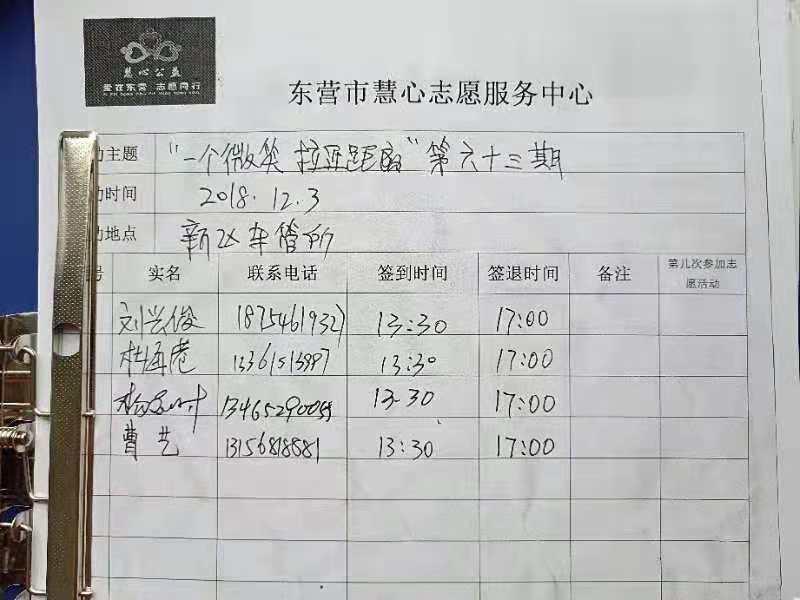 慧心公益
爱在东营 志愿同行
东营市慧心志愿服务中心
动主题 "一个微笑 拉近距离"第六十三期
动时间 2018.12.3
动地点 新区车管所
号 实名 联系电话 签到时间 签退时间 备注 第几次参加志愿活动
刘兴俊 18754619327 13:30 17:00
杜海 13:30 17:00
杨 13:30 17:00
曹艺 13156818881 13:30 17:00